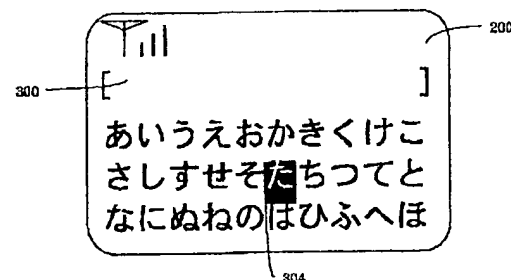 200
300
[ ]
あいうえおかきくけこ
さしすせそたちつてと
なにぬねのはひふへほ
304